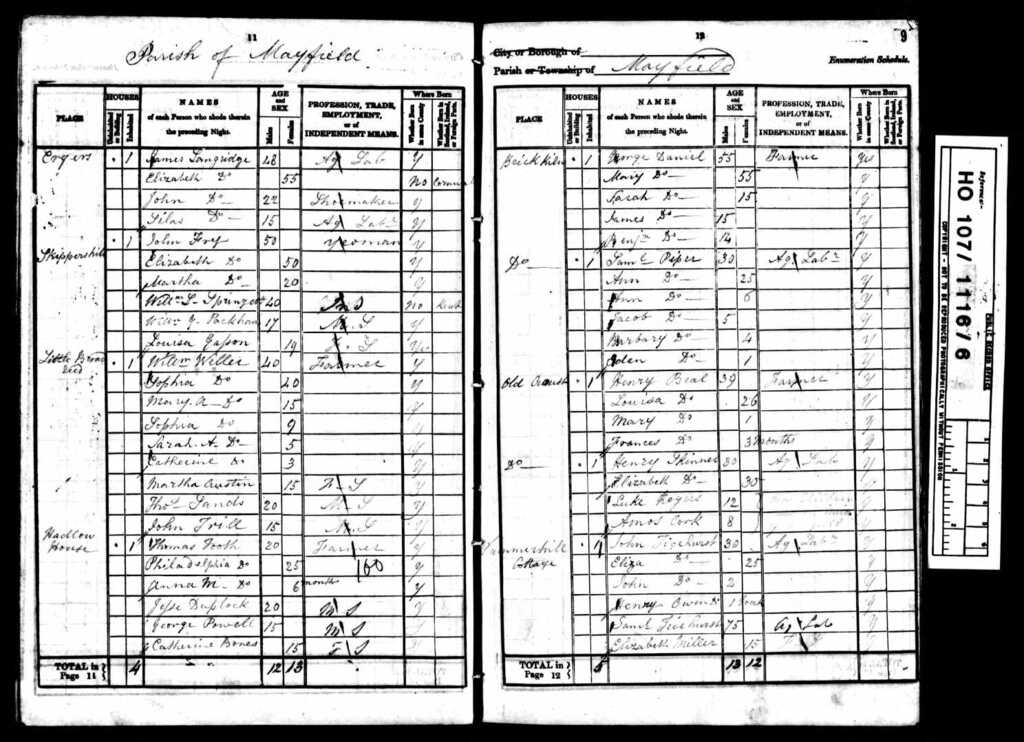 11
Parish of Mayfield
PLACE HOUSES Uninhabited or Building Inhabited NAMES of each Person who abode therein the preceding Night. AGE and SEX Males Females PROFESSION, TRADE, EMPLOYMENT, or of INDEPENDENT MEANS. Where Born Whether Born in same County Whether Born in Scotland, Ireland, or Foreign Parts.
1 James Langridge 48 Ag Lab Y
Elizabeth Do 55 No
John Do 22 Shoemaker Y
Silas Do 15 Ag Lab Y
Skippershill 1 John Fry 50 Yeoman Y
Elizabeth Do 50 Y
Martha Do 20 Y
Willm S. Springett 40 No
Willm Y. Packham 17 M. S Y
Louisa Gasson 19 F. S
Little Broad reed 1 Willm Weller 40 Farmer Y
Sophia Do 40 Y
Mary A Do 15 Y
Sophia Do 9
Sarah A. Do 5
Catherine Do 3 Y
Martha Austin 15 F S Y
Thos Sands 20 M S Y
John Trill 15 M. S Y
Hadlow House 1 Thomas Footh 20 Farmer Y
Philadelphia Do 25 Y
Anna M. Do 6 months Y
Jesse Duplock 20 M S Y
George Powell 15 M S
Catherine Bones 15 F S
TOTAL in Page 11 4 12 13
12
9
City or Borough of
Parish or Township of Mayfield
Enumeration Schedule.
PLACE HOUSES Uninhabited or Building Inhabited NAMES of each Person who abode therein the preceding Night. AGE and SEX Males Females PROFESSION, TRADE, EMPLOYMENT, or of INDEPENDENT MEANS. Where Born Whether Born in same County Whether Born in Scotland, Ireland, or Foreign Parts.
Brick Kiln 1 George Daniel 55 Farmer Yes
Mary Do 55 Y
Sarah Do 15 Y
James Do 15 Y
Benjn Do 14 Y
Do 1 Saml Piper 30 Ag Lab Y
Ann Do 25 Y
Ann Do 6 Y
Jacob Do 5 Y
Barbary Do 4 Y
Eden Do 1 Y
Old 1 Henry Beal 39 Farmer Y
Louisa Do 26 Y
Mary Do 1 Y
Frances Do 3 months Y
Do 1 Henry Skinner 30 Ag Lab Y
Elizabeth Do 30 Y
Luke Rogers 12 Y
Amos Cork 8 Y
Summerhill Cottage 1 John Ticehurst 30 Ag Lab Y
Eliza Do 25 Y
John Do 2 Y
Henry Owen Do 1 Y
Saml Ticehurst 75 Ag Lab Y
Elizabeth Miller 15 F S Y
TOTAL in Page 12 5 13 12
Reference:-
HO 107/1116/6
COPYRIGHT - NOT TO BE REPRODUCED PHOTOGRAPHICALLY WITHOUT PERMISSION
PUBLIC RECORD OFFICE